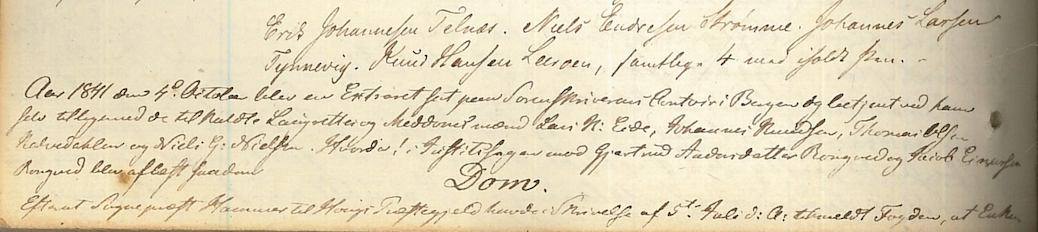 Erik Johannesen Telnæs. Niels Endresen Strømme. Johannes Larsen
Tynnevig. Knud Hansen Leeroen, samtlige 4 med iholdt Pen. -
Aar 1841 den 4de October blev en Extraret sat paa Sorenskriverens Contoir i Bergen og betjent ved ham
selv tilligemed de tilkaldte Laugrettes og Meddoms mænd Lars N: Eide, Johannes Knudsen, Thomas Olsen
og Niels G: Nielsen. Hvorda! i Justitssagen mod Gjertrud Andersdatter Rongved og Jacob Einersen
Rongved blev aflæst saadan
Dom.
Efterat Sognepræst Hammer til Præstegjeld havde i Skrivelse af 5te Juli d: A: tilmeldt Fogden, at Enken